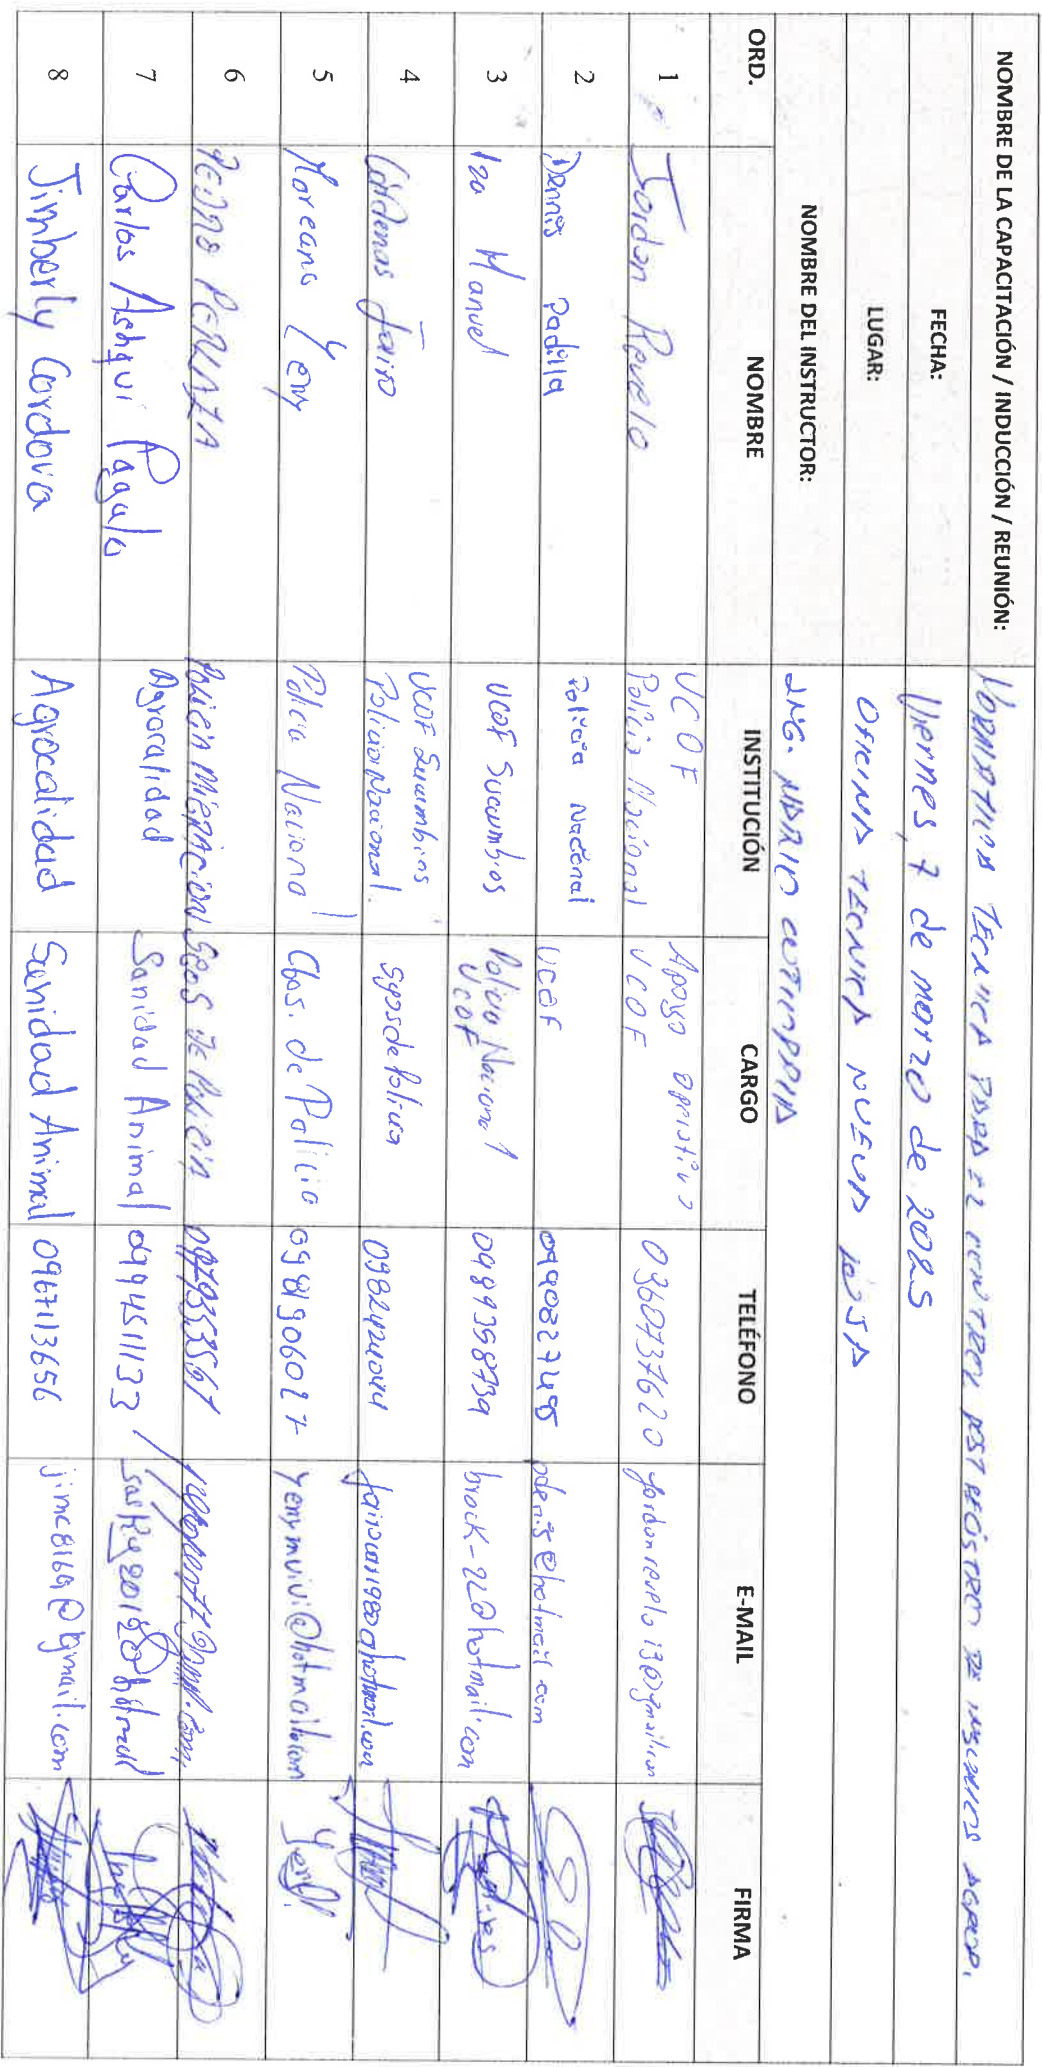 NOMBRE DE LA CAPACITACIÓN / INDUCCIÓN / REUNIÓN: NORMATIVA TECNICA PARA EL CONTROL POST REGISTRO DE INSUMOS AGROP.
FECHA: Viernes, 7 de marzo de 2025
LUGAR: OFICINA TECNICA NUEVA LOJA
NOMBRE DEL INSTRUCTOR: ING. MARIO
ORD. NOMBRE INSTITUCIÓN CARGO TELÉFONO E-MAIL FIRMA
1 Jordan Revelo UCOF Policia Nacional Apoyo Operativo UCOF 0368737620 jordanrevelo13@gmail.com
2 Dennis Padilla Policia Nacional UCOF 0990827495 pdenis@hotmail.com
3 Iza Manuel UCOF Sucumbios Policia Nacional UCOF 0989398739 brock-22@hotmail.com
4 Cárdenas Jairo UCOF Sucumbios Policia Nacional. Sgos de Policia jairocar1980@hotmail.com
5 Moreano Yeny Policia Nacional Cbos. de Policia 0981906027 yenymuivi@hotmail.com
6 PEDRO PERUAZA Policia Migracion Sgos de Policia 0979353561
7 Carlos Ashqui Pagalo Agrocalidad Sanidad Animal 0994511133
8 Jimberly Cordova Agrocalidad Sanidad Animal 0967113656 jimc8169@gmail.com